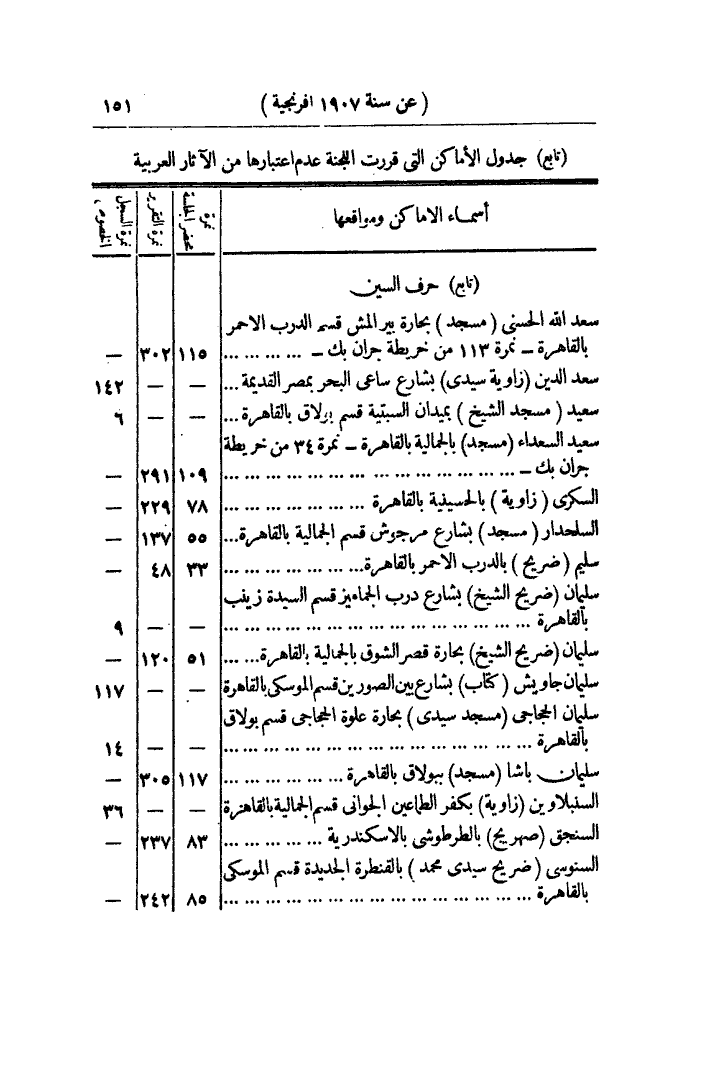 (عن سنة ١٩٠٧ افرنجية) ١٥١
(تابع) جدول الأماكن التى قررت اللجنة عدم اعتبارها من الآثار العربية
أسماء الاماكن ومواقعها نمرة محضر الجلسة نمرة التقرير نمرة السجل الخصوصى
(تابع) حرف السين
سعد الله الحسنى (مسجد) بحارة بير المش قسم الدرب الاحمر
بالقاهرة ــ نمرة ١١٣ من خريطة جران بك ــ ... ... ... ... ١١٥ ٣٠٢ —
سعد الدين (زاوية سيدى) بشارع ساعى البحر بمصر القديمة ... — — ١٤٢
سعيد (مسجد الشيخ) بميدان السبتية قسم بولاق بالقاهرة ... — — ٦
سعيد السعداء (مسجد) بالجمالية بالقاهرة ــ نمرة ٣٤ من خريطة
جران بك ــ ... ... ... ... ... ... ... ... ... ... ... ... ١٠٩ ٢٩١ —
السكرى (زاوية) بالحسينية بالقاهرة ... ... ... ... ... ... ٧٨ ٢٢٩ —
السلحدار (مسجد) بشارع مرجوش قسم الجمالية بالقاهرة ... ٥٥ ١٣٧ —
سليم (ضريح) بالدرب الاحمر بالقاهرة ... ... ... ... ... ... ٣٣ ٤٨ —
سليمان (ضريح الشيخ) بشارع درب الجماميز قسم السيدة زينب
بالقاهرة ... ... ... ... ... ... ... ... ... ... ... ... ... — — ٩
سليمان (ضريح الشيخ) بحارة قصر الشوق بالجمالية بالقاهرة ... ... ٥١ ١٢٠ —
سليمان جاويش (كتاب) بشارع بين الصورين قسم الموسكى بالقاهرة — — ١١٧
سليمان الحجاجى (مسجد سيدى) بحارة علوة الحجاجى قسم بولاق
بالقاهرة ... ... ... ... ... ... ... ... ... ... ... ... ... — — ١٤
سليمان باشا (مسجد) ببولاق بالقاهرة ... ... ... ... ... ... ١١٧ ٣٠٥ —
السنبلاوين (زاوية) بكفر الطماعين الجوانى قسم الجمالية بالقاهرة — — ٣٦
السنجق (صهريج) بالطرطوشى بالاسكندرية ... ... ... ... ... ٨٣ ٢٣٧ —
السنوسى (ضريح سيدى محمد) بالقنطرة الجديدة قسم الموسكى
بالقاهرة ... ... ... ... ... ... ... ... ... ... ... ... ... ٨٥ ٢٤٢ —